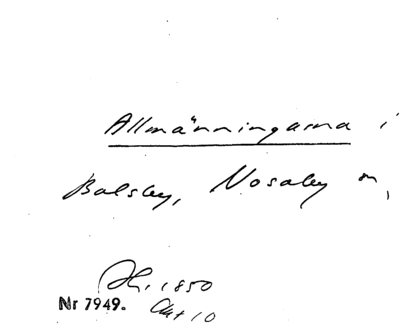 Allmänningarna i
Balsby, Nosaby m,
1850
Nr 7949. Akt 10